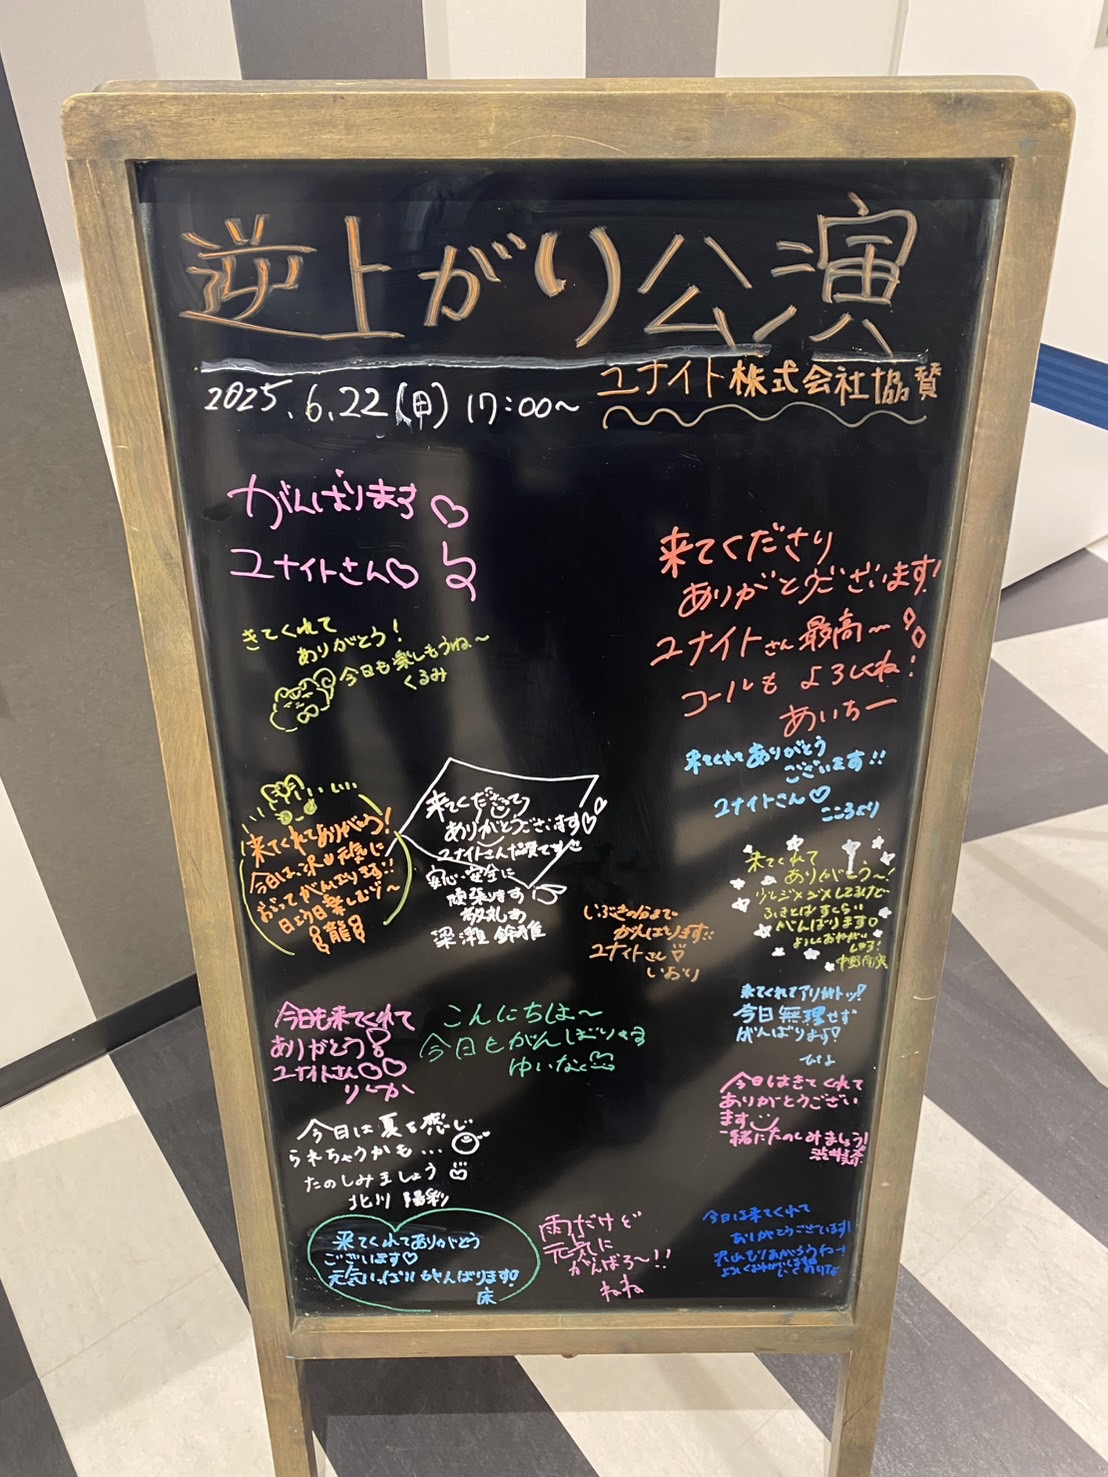 逆上がり公演
ユナイト株式会社協賛
2025.6.22(日) 17:00~
がんばります♡
ユナイトさん♡
きてくれて
ありがとう!
今日も楽しもうね~
くるみ
来てくださり
ありがとうございます!
ユナイトさん最高~!
コールも よろしくね!
あいちー
来てくれてありがとう
ございます!!
ユナイトさん♡
こころより
来てくれてありがとう!
今日は、沢山元気に
がんばります!!
龍
来てくださって
ありがとうございます♡
ユナイトさん協賛です
安心・安全に
頑張ります!
敬礼
梁瀬 鈴雅
来てくれて
ありがとう~!
少しジメジメしてるけど
ふきとばすくらい
がんばります♡
がんばります!!
ユナイトさん
いおり
来てくれてアリガトッ!
今日無理せず
がんばります♡
今日も来てくれて
ありがとう
ユナイトさん♡♡
りーか
こんにちは~
今日もがんばります
ゆいな
今日はきてくれて
ありがとうござい
ます
一緒にたのしみましょう!
今日は夏を感じ
られちゃうかも...
たのしみましょう
北川 陽彩
来てくれてありがとう
ございます♡
元気いっぱいがんばります!
雨だけど
元気に
がんばろ~!!
ねね
今日は来てくれて
ありがとうございます!